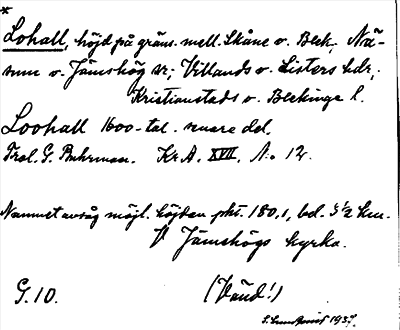 *
Lohall, höjd på gräns. mell. Skåne o. Blek., Nä-
sum o. Jämshög sr; Villands o. Listers hdr;
Kristianstads o. Blekinge l.
Loohall 1600-tal. senare del,
Trol. G. Buhrman. Kr.A. XVII, No 12.
Namnet avsåg möjl. höjden pkt. 180,1, bel. 3 1/2 km.
V Jämshögs kyrka.
G. 10. (Vänd!)
1937.